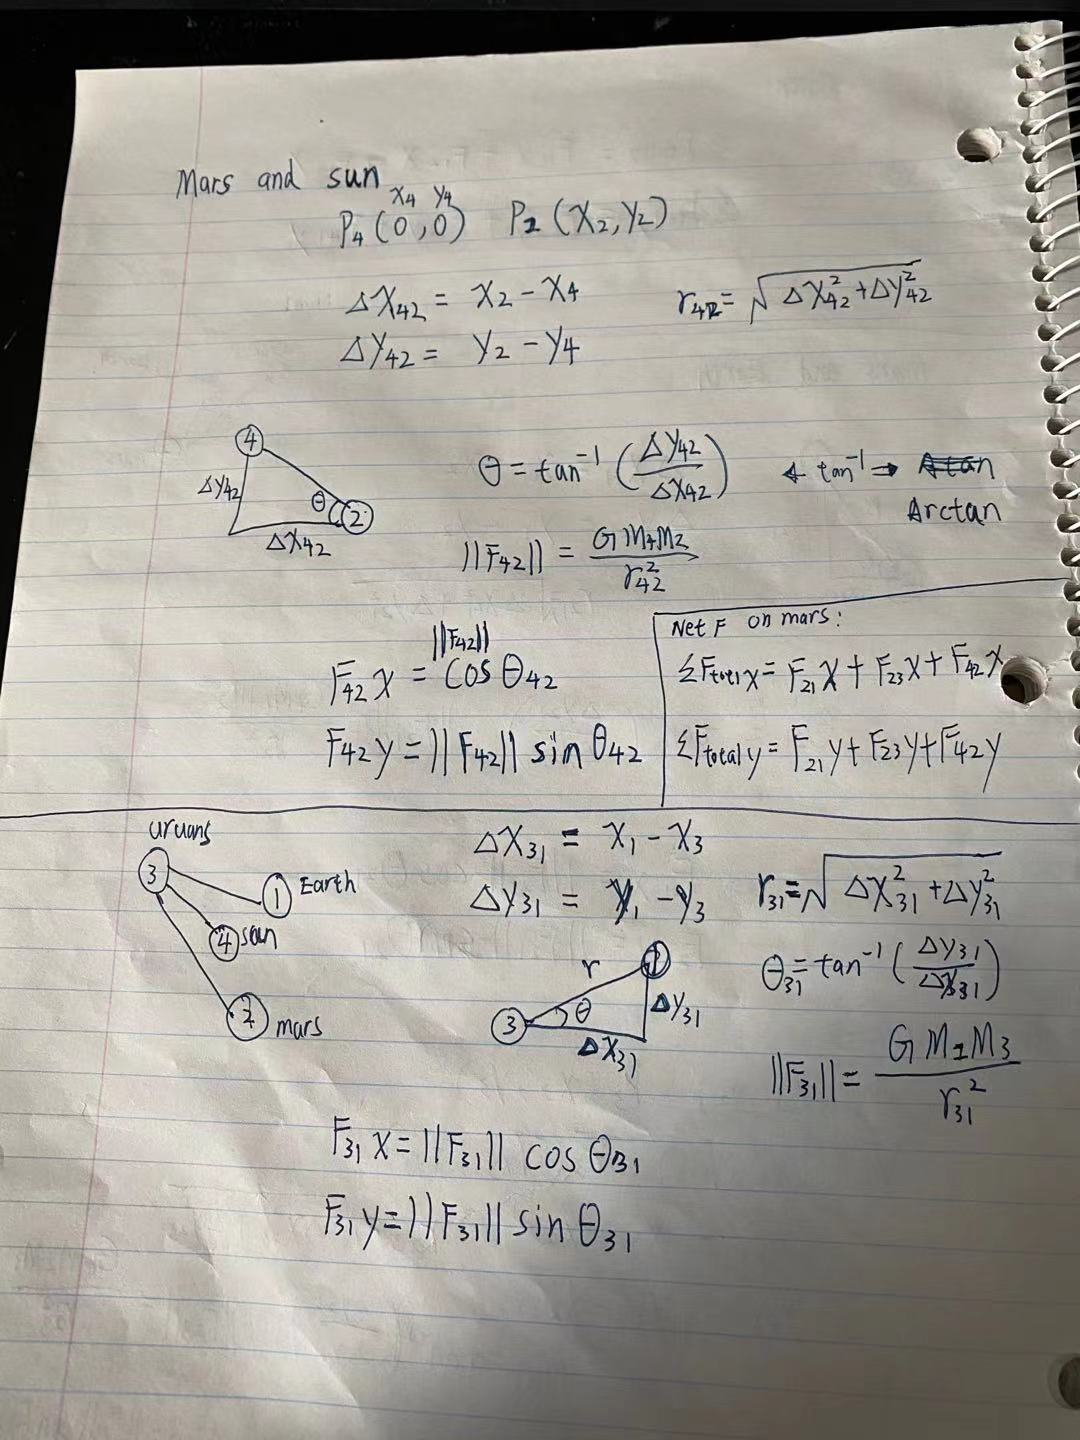 Mars and sun
X4 Y4
P4 (0,0) P2 (X2, Y2)
ΔX42 = X2 - X4
r42 = √ΔX42² + ΔY42²
ΔY42 = Y2 - Y4
4
ΔY42
θ
2
ΔX42
θ = tan⁻¹ (ΔY42/ΔX42)
tan⁻¹ → Atan
Arctan
||F42|| = G M4M2/r42²
||F42||
F42 X = cos θ42
F42 y = ||F42|| sin θ42
Net F on mars:
ΣFtotl X = F21 X + F23 X + F42 X
ΣFtotal y = F21 y + F23 y + F42 y
uruans
3
1 Earth
4 sun
2 mars
ΔX31 = X1 - X3
ΔY31 = Y1 - Y3
r31 = √ΔX31² + ΔY31²
r
1
3
θ
ΔY31
ΔX31
θ31 = tan⁻¹ (ΔY31/ΔX31)
||F31|| = G M1M3/r31²
F31 X = ||F31|| cos θ31
F31 y = ||F31|| sin θ31